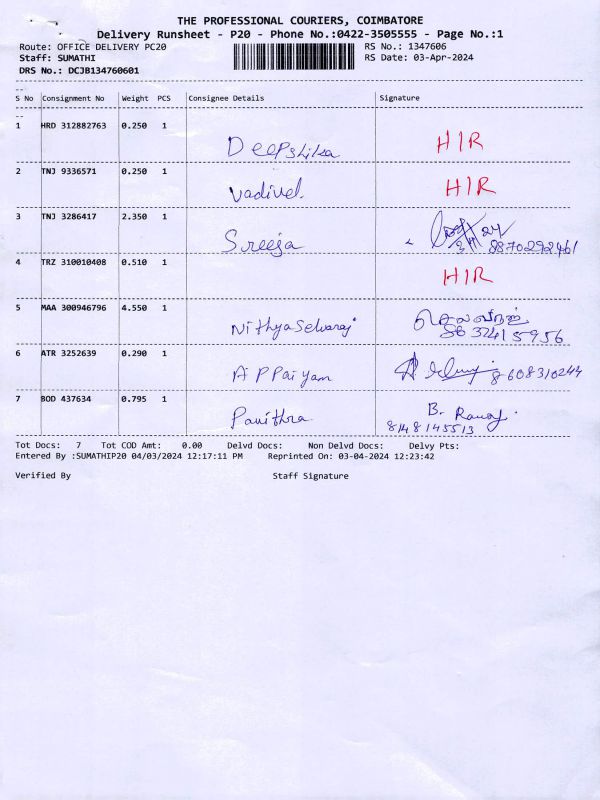 THE PROFESSIONAL COURIERS, COIMBATORE
Delivery Runsheet - P20 - Phone No.:0422-3505555 - Page No.:1
Route: OFFICE DELIVERY PC20 RS No.: 1347606
Staff: SUMATHI RS Date: 03-Apr-2024
DRS No.: DCJB134760601
S No Consignment No Weight PCS Consignee Details Signature
1 HRD 312882763 0.250 1 Deepshika HIR
2 TNJ 9336571 0.250 1 Vadivel. HIR
3 TNJ 3286417 2.350 1 Sreeja 8870292461
4 TRZ 310010408 0.510 1 HIR
5 MAA 300946796 4.550 1 Nithyaselvaraj செல்வராஜ்
6 ATR 3252639 0.290 1 AIPPaiyam 8608310244
7 BOD 437634 0.795 1 Pavithra B.
8148145513
Tot Docs: 7 Tot COD Amt: 0.00 Delvd Docs: Non Delvd Docs: Delvy Pts:
Entered By :SUMATHIP20 04/03/2024 12:17:11 PM Reprinted On: 03-04-2024 12:23:42
Verified By Staff Signature